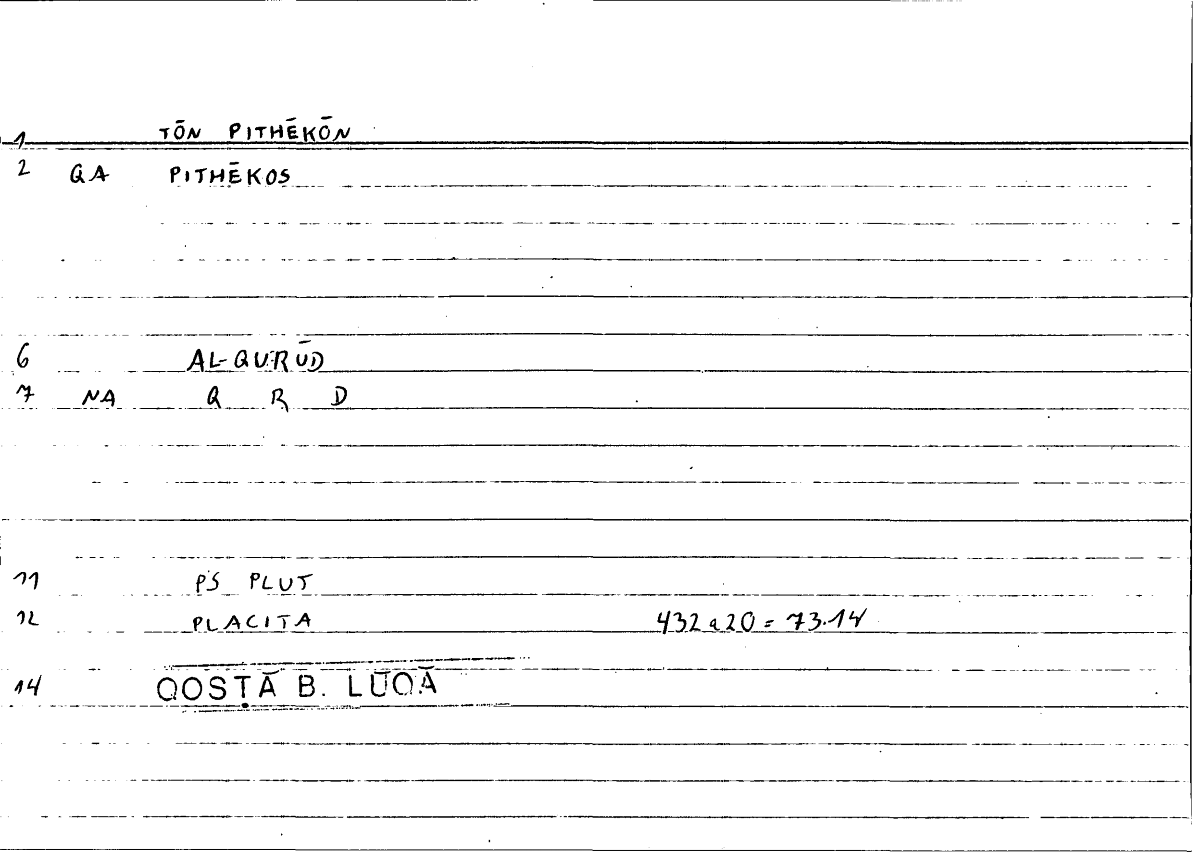 1 TŌN PITHĒKŌN
2 QA PITHĒKOS
6 AL-QURŪD
7 NA Q R D
11 PS PLUT
12 PLACITA 432a20 = 73.14
14 QOSṬĀ B. LŪQĀ